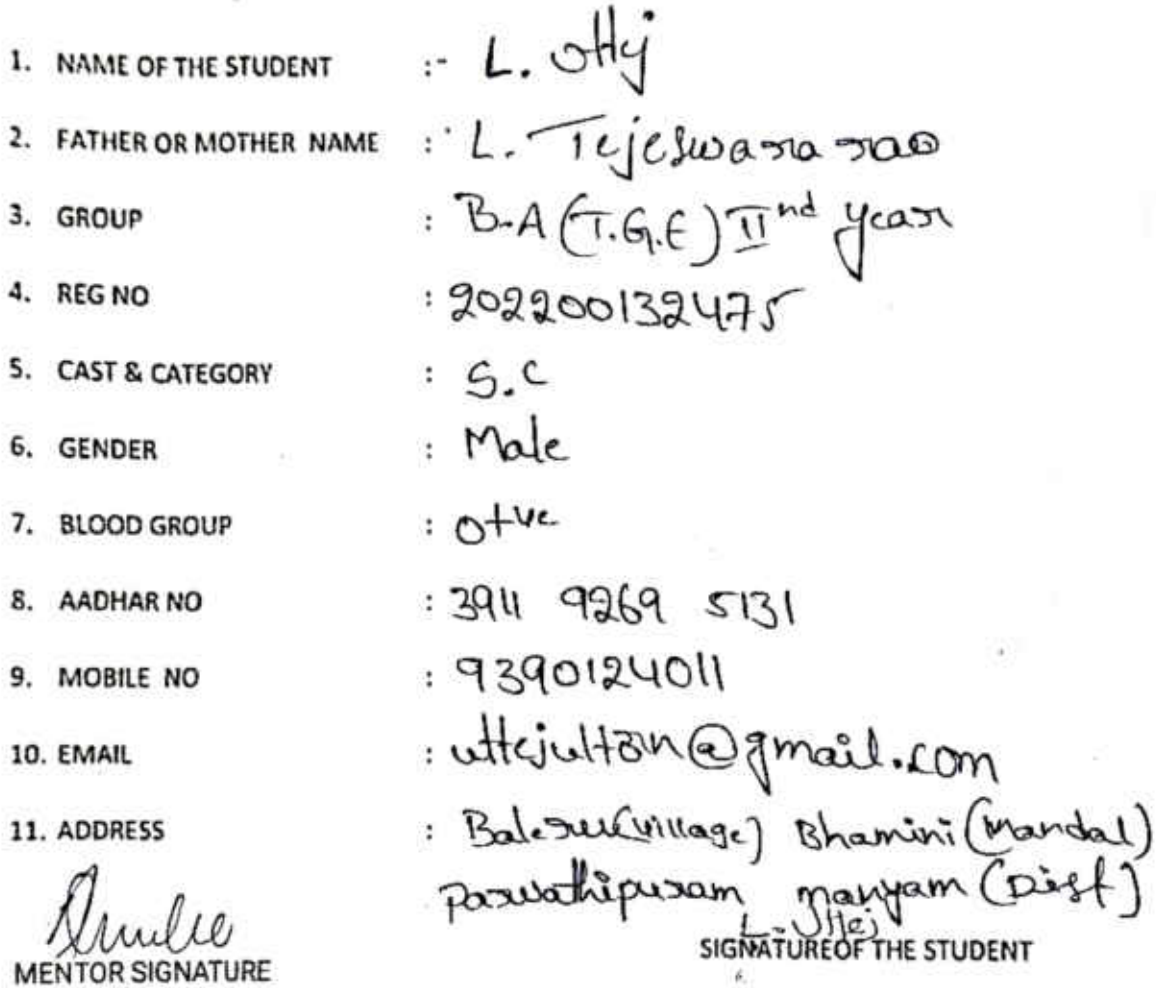 1. NAME OF THE STUDENT :- L. Uttej
2. FATHER OR MOTHER NAME : L. Tejeswara rao
3. GROUP : B.A (T.G.E) IInd year
4. REG NO : 2022200132475
5. CAST & CATEGORY : S.C
6. GENDER : Male
7. BLOOD GROUP : O+ve
8. AADHAR NO : 3911 9269 5131
9. MOBILE NO : 9390124011
10. EMAIL : @gmail.com
11. ADDRESS : Baleru(village) Bhamini (Mandal)
Parvathipuram manyam (Dist)
L. Uttej
MENTOR SIGNATURE SIGNATUREOF THE STUDENT